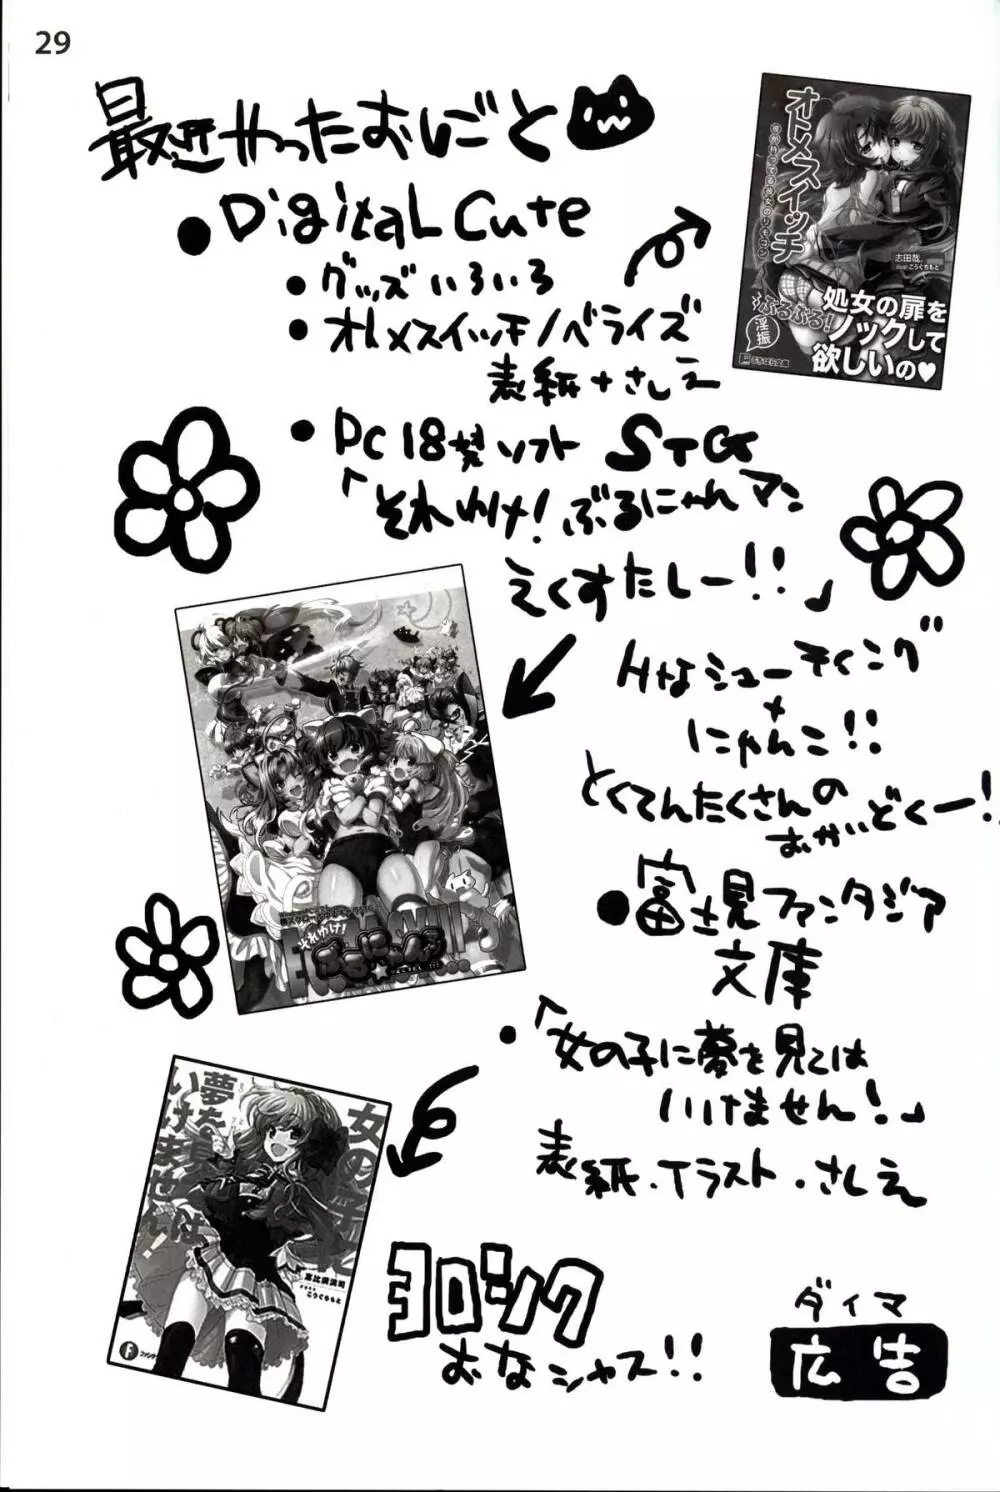 29
最近やったおしごと
● Digital Cute
● グッズいろいろ
● オトメスイッチノベライズ
表紙+さしえ
● PC18禁ソフト STG
「それゆけ!ぶるにゃんマン
えくすたしー!!」
Hなシューティング
+
にゃんこ!!
とくてんたくさんの
おかいどくー!
● 富士見ファンタジア
文庫
● 「女の子に夢を見ては
いけません!」
表紙・イラスト・さしえ
ヨロシク
おなシャス!!
ダイマ
広告
オトメスイッチ
俺が持ってる彼女のリモコン
志田哉。
illust こうぐちもと
ぶるぶる!
淫振
処女の扉を
ノックして
欲しいの♥
ぷちぱら文庫
それゆけ!
ぶるにゃんマン
女の子に
夢を見ては
いけません!
恵比須清司
こうぐちもと